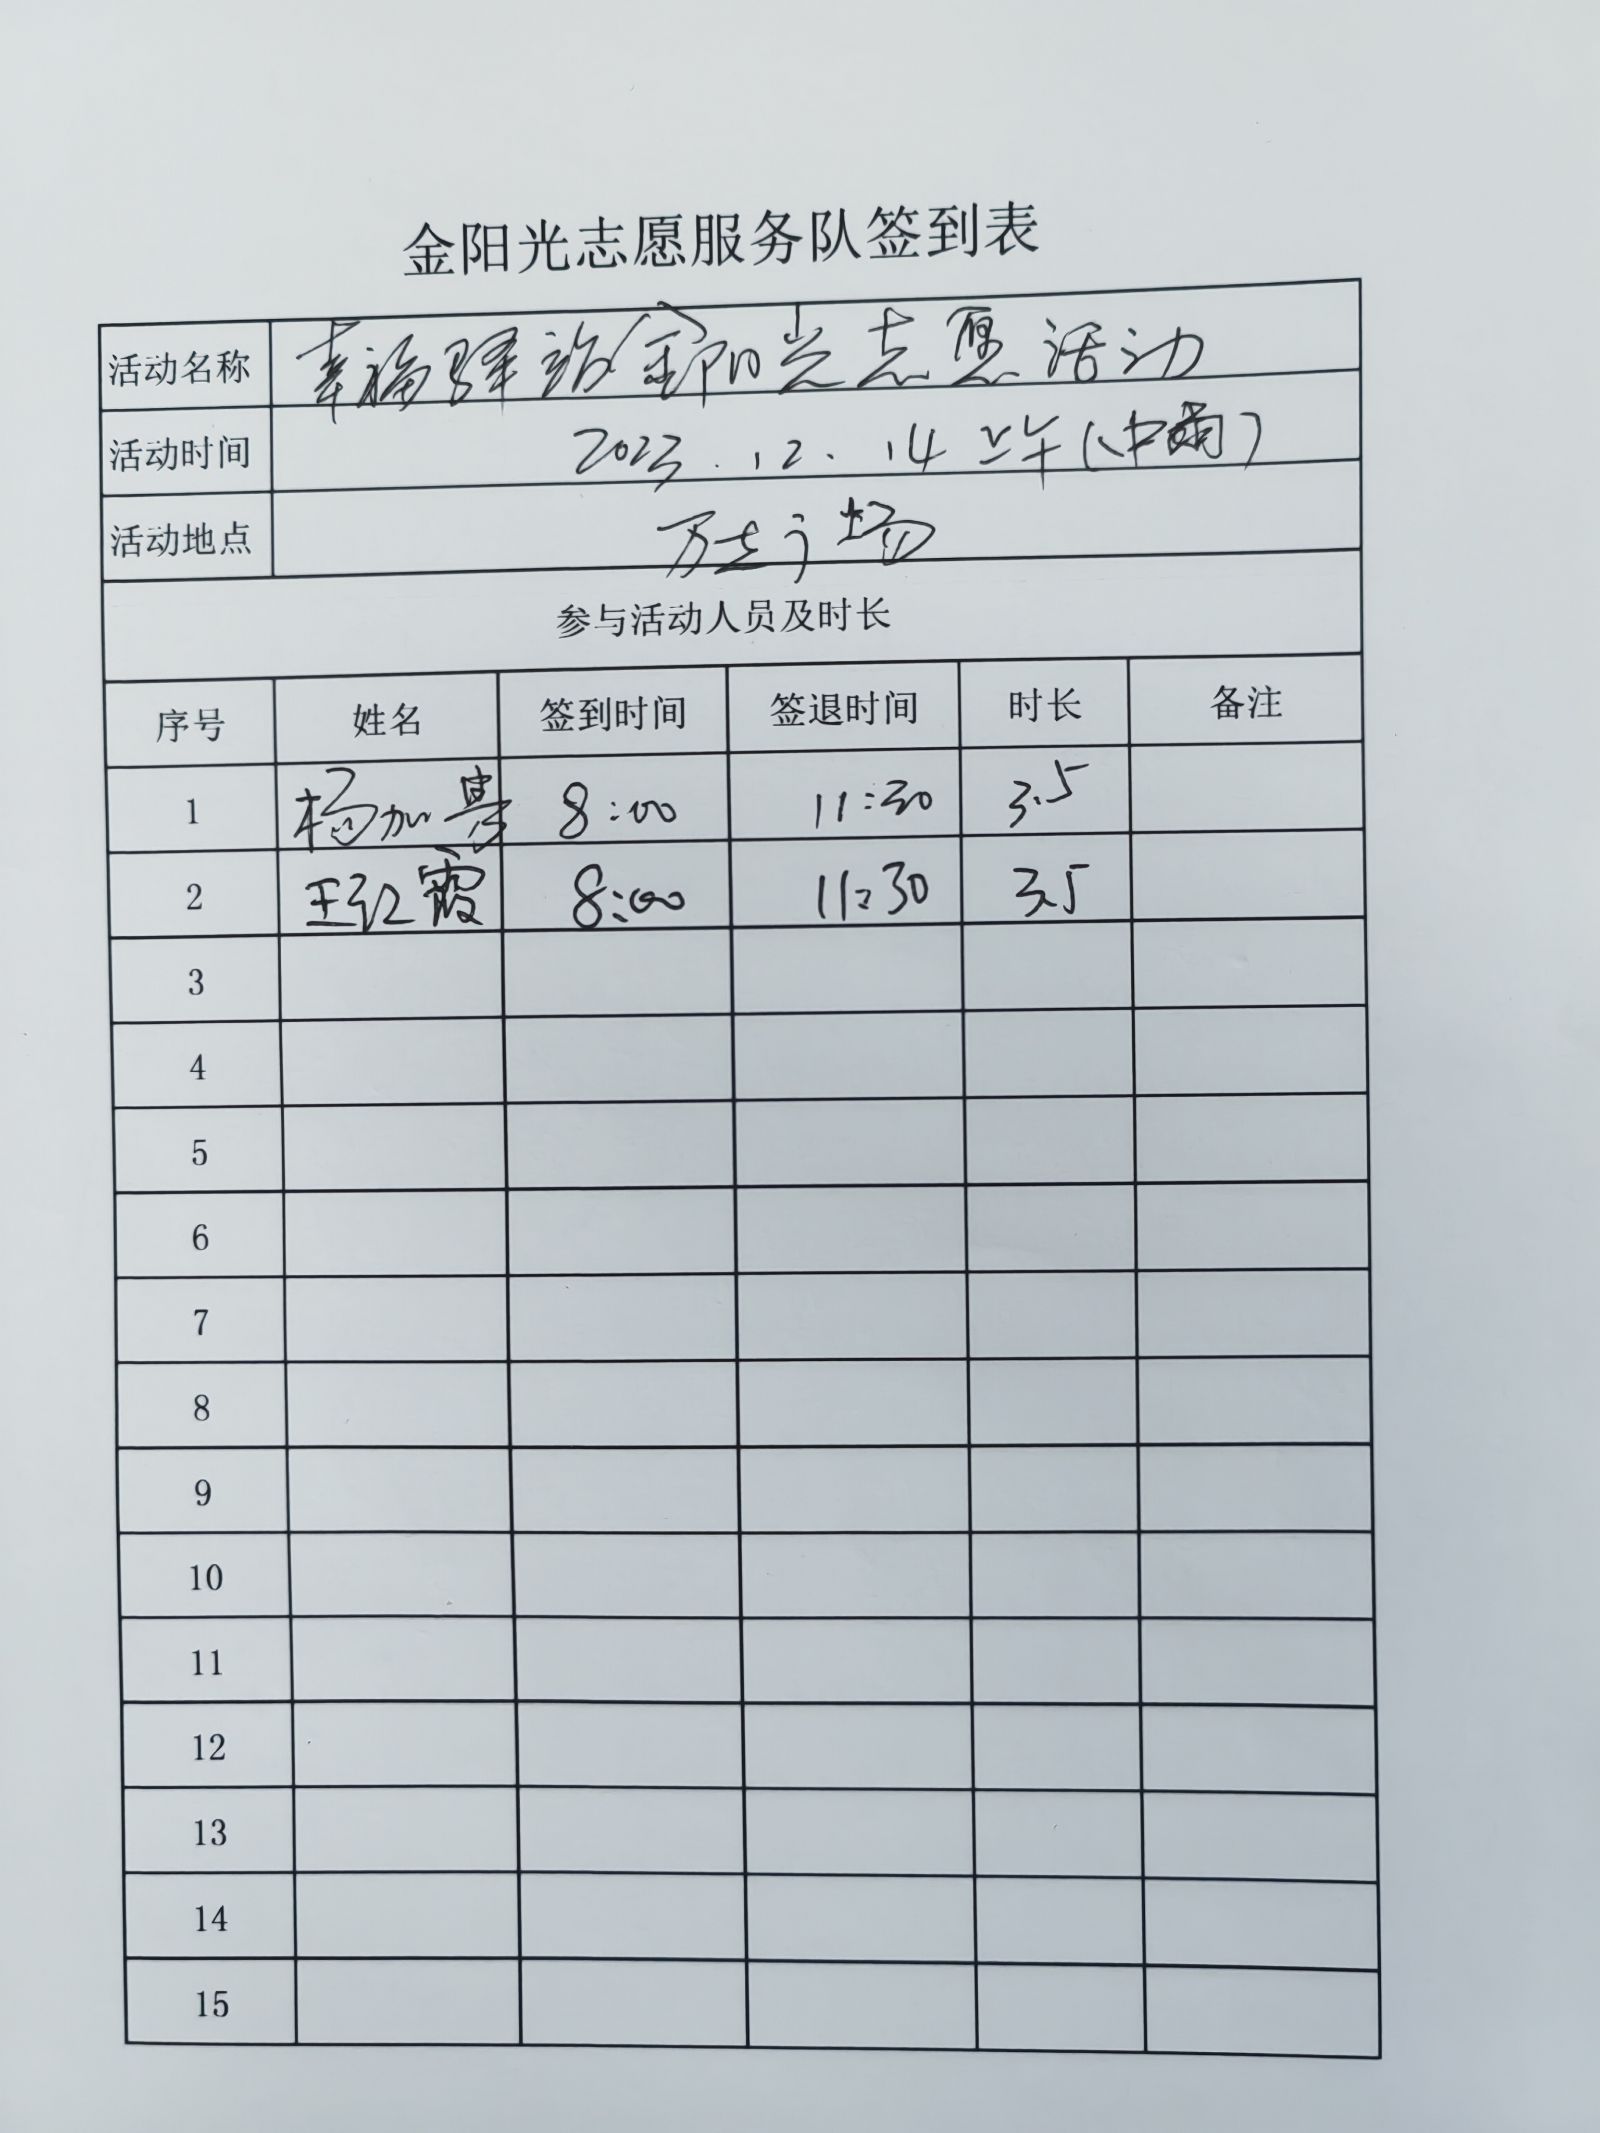 金阳光志愿服务队签到表
活动名称 幸福驿站金阳光志愿活动
活动时间 2023.12.14上午(中雨)
活动地点 万达广场
参与活动人员及时长
序号 姓名 签到时间 签退时间 时长 备注
1 杨加贵 8:00 11:30 3.5
2 王红霞 8:00 11:30 3.5
3
4
5
6
7
8
9
10
11
12
13
14
15